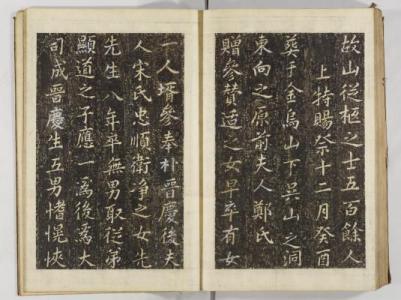 故山從柩之士五百餘人
上特賜祭十二月癸酉
葬于金烏山下吳山之洞
東向之原前夫人鄭氏
贈參贊适之女早卒有女
一人壻參奉朴晉慶後夫
人宋氏忠順衛淨之女先
先生八年卒無男取從弟
顯道之子應一爲後爲大
司成晉慶生五男愰